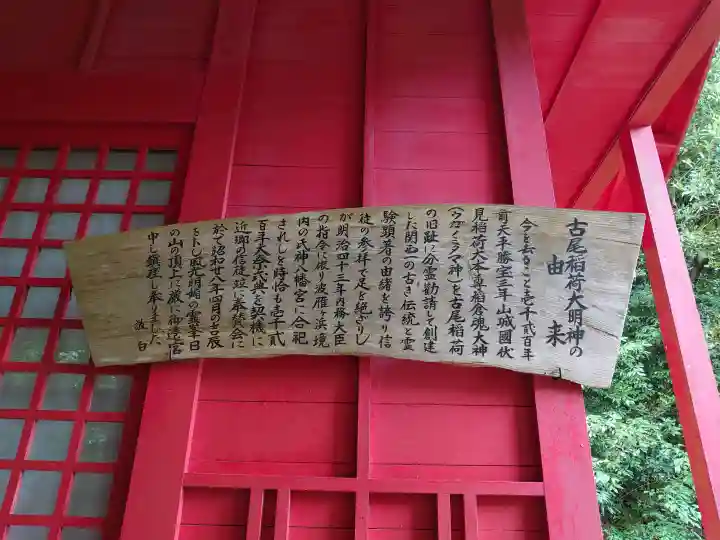 古尾稲荷大明神の
由来
今を去ること壱千弐百年
前天平勝宝三年山城國伏
見稲荷大本尊稲倉魂大神
(ウカノミタマ神)を古尾稲荷
の旧趾に分霊勧請して創建
した関西一の古き伝統と霊
験顕著の由緒を誇り信
徒の参拝で足を絶ざりし
が明治四十三年内務大臣
の指令に依り波雁ヶ浜境
内の氏神八幡宮に合祀
されしを時恰も壱千弐
百年大会式典を契機に
近郷の信徒短に奉賛会に
於て昭和廿八年四月の吉辰
を卜し風光明媚の霊峯日
の山の頂上に厳に御遷宮
申し鎮座し奉りました
敬白